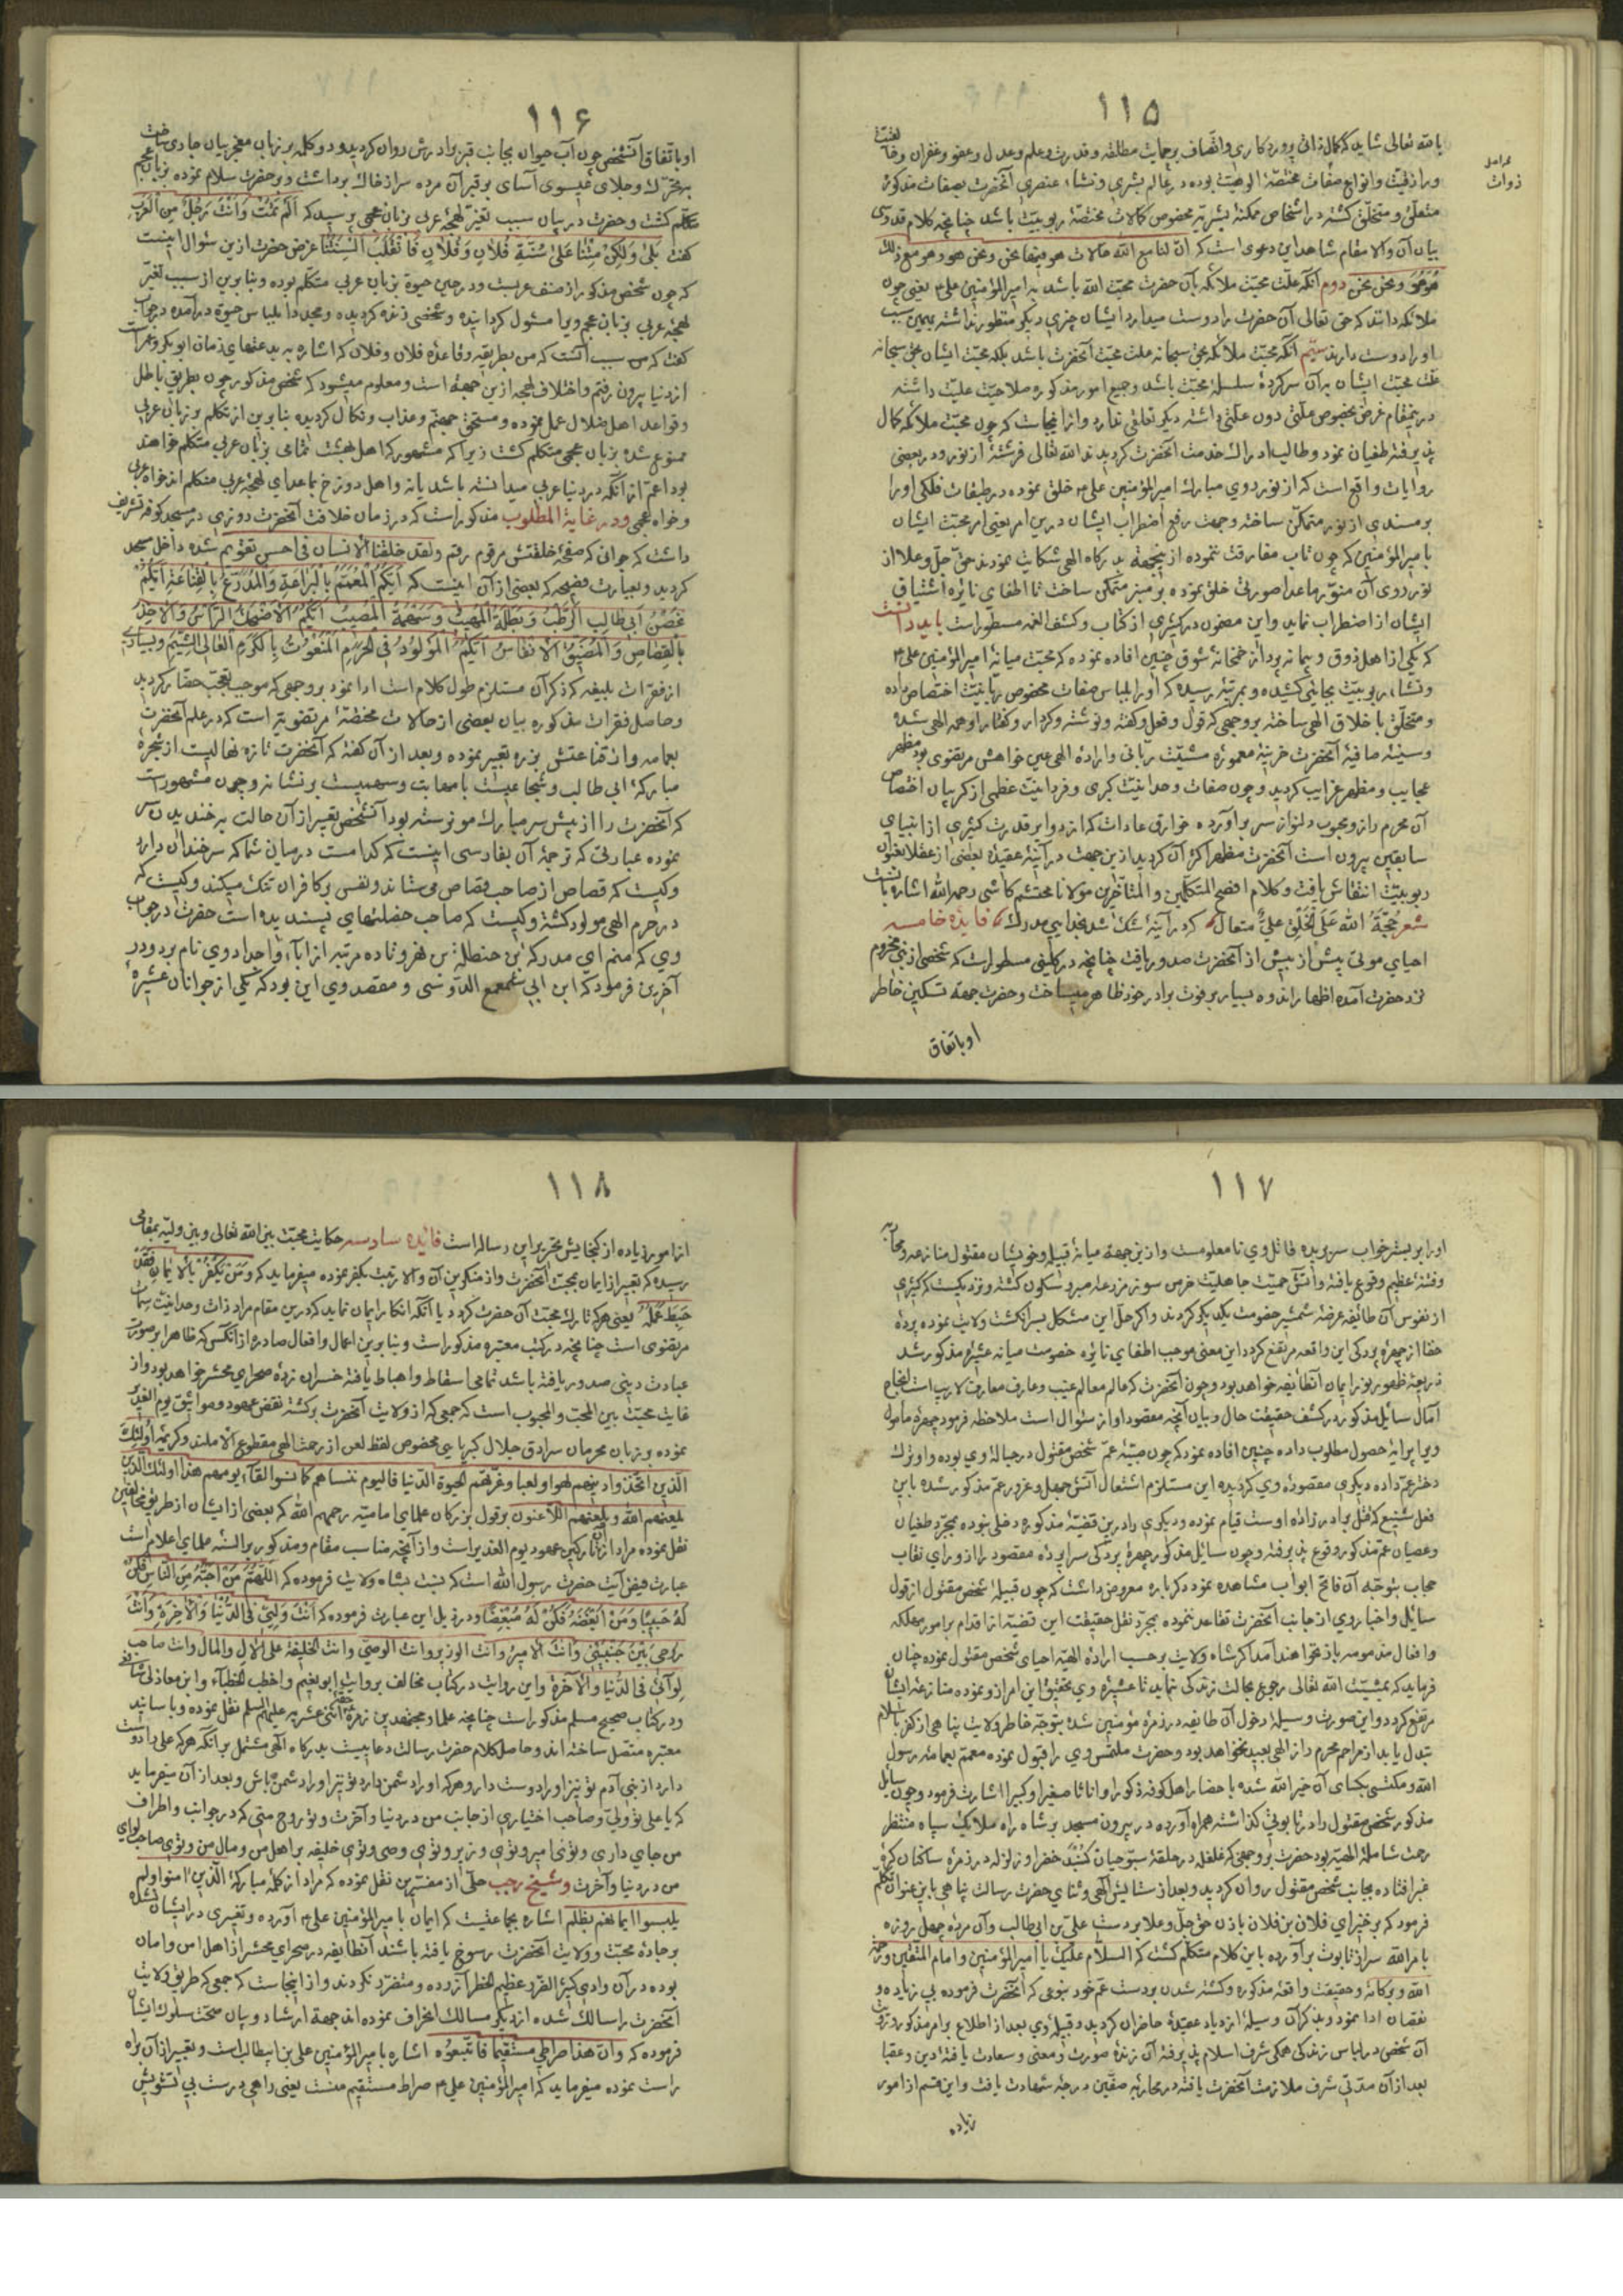 ١١۵
بالله تعالی شاید که کمال ذاتی پروردکاری واتصاف برحمایت مطلقه وقدرت وعلم وعدل وعفو وغفران
ورازقیت وانواع صفات مختصهٔ الوهیت بوده در عالم بشری ونشاء عنصری آنحضرت بصفات مذکوره
متعلق ومتخلق کشته در اشخاص ممکنهٔ بشریه مخصوص کمالات مختصهٔ ربوبیت باشد چنانچه کلام قدوسی
بیان آن والا مقام شاهد این دعوی است که ان لنا مع الله حالات هو فیها نحن ونحن هو وهو مع ذلك
هو هو ونحن نحن دوم آنکه علت محبت ملائکه بآن حضرت محبت الله باشد به امیرالمؤمنین علی یعنی چون
ملائکه دانند که حق تعالی آن حضرت را دوست میدارد ایشان چیزی دیکر منظور نداشته بهمین سبب
او را دوست دارند سیم آنکه محبت ملائکه بحق سبحانه علت محبت آنحضرت باشد بلکه محبت ایشان بحق سبحانه
علت محبت ایشان بآن سرکردهٔ سلسلهٔ محبت باشد وجمیع امور مذکوره صلاحیت علیت داشته
در ینمقام غرض بخصوص علتی دون علتی داشته دیکر تعلقی ندارد واز اینجاست که چون محبت ملائکه کمال
پذیرفته طغیان نمود وطالب ادراك خدمت آنحضرت کردیدند الله تعالی فرشتهٔ از نور ودر بعضی
روایات واقع است که از نور روی مبارك امیرالمؤمنین علی خلق نموده در طبقات فلکی او را
بر مسندی از نور متمکن ساخته وجهت رفع اضطراب ایشان درین امر یعنی امر محبت ایشان
بامیرالمؤمنین که چون تاب مفارقت ننموده از ینجهة بدرکاه الهی شکایت نمودند حق جل وعلا از
نور روی آن منور ماعدا صورتی خلق نموده بر منبر متمکن ساخت تا اطفای نایرهٔ اشتیاق
ایشان از اضطراب نماید واین مضمون در کثیری از کتاب وکشف الغمه مسطور است باید دانست
که یکی از اهل ذوق وپیمانه پرداز خمخانهٔ شوق چنین افاده نموده که محبت میانهٔ امیرالمؤمنین علی
ونشاء ربوبیت بجایی کشیده وبمرتبهٔ رسیده که او را بلباس صفات مخصوص ربانیت اختصاص داده
ومتخلق باخلاق الهی ساخته بروجهی که قول وفعل وکفته ونوشته وکردار وکفتار او همه الهی شده
وسینهٔ صافیهٔ آنحضرت خزینهٔ معمورهٔ مشیت ربانی وارادهٔ الهی عین خواهش مرتضوی بود مظهر
عجایب ومظهر غرایب کردید وچون صفات وحدانیت کبری وفردانیت عظمی از کریبان اختصاص
آن محرم راز ومحبوب دلنواز سر برآورده خوارق عادات که از دوایر قدرت کثیری از انبیای
سابقین بیرون است آنحضرت مظهر اکثر آن کردید ازین جهت در آینهٔ عقیدهٔ بعضی از عقلا بعنوان
ربوبیت انتقاش یافت وکلام افصح المتکلمین والمتأخرین مولانا محتشم کاشی رحمه الله اشاره بآنست
شعر حجة الله علی الخلق علی متعال که در آینهٔ شك شد بخدایی مدرك فایدهٔ خامسه
احیای موتی پیش از بیش از آنحضرت صدور یافت چنانچه در کلینی مسطور است که شخصی از بنی مخزوم
نزد حضرت آمده اظهار اندوه بسیار بر فوت برادر خود ظاهر میساخت وحضرت جهة تسکین خاطر
او باتفاق
١١۶
او باتفاق آنشخص چون آب حیوان بجانب قبر برادرش روان کردید ودو کلمه بر زبان معجز بیان جاری ساخت
بمجرد حرکت وجلای عیسوی آسای بر قبر آن مرده سر از خاك برداشت وبر حضرت سلام نموده بزبان عجم
متکلم کشت وحضرت در بیان سبب تغیر لهجهٔ عربی بزبان عجمی پرسید که الم تمت وانت رجل من العرب
کفت بلی ولکن متنا علی سنة فلان وفلان فانقلب السنتنا غرض حضرت ازین سئوال اینست
که چون شخص مذکور از صنف عربست ودر حین حیوة بزبان عربی متکلم بوده وبنابرین از سبب تغیر
لهجهٔ عربی بزبان عجم ویرا مسئول کردانیده وشخص زنده کردیده ومجددا بلباس حیوة درآمده در جواب
کفت که من سبب آنست که من بطریقه وقاعدهٔ فلان وفلان که اشاره به بدعتهای زمان ابوبکر وعمر است
از دنیا بیرون رفتم واختلاف لهجه ازین جهة است ومعلوم میشود که شخص مذکور چون بطریق باطل
وقواعد اهل ضلال عمل نموده ومستحق جهنم وعذاب ونکال کردیده بنابرین از تکلم بزبان عربی
ممنوع شده بزبان عجمی متکلم کشت زیرا که مشهور که اهل بهشت تمامی بزبان عربی متکلم خواهند
بود اعم از آنکه در دنیا عربی میدانسته باشد یا نه واهل دوزخ بماعدای لهجهٔ عربی متکلم اند خواه عربی
وخواه عجمی ودر غایة المطلوب مذکور است که در زمان خلافت آنحضرت روزی در مسجد کوفه تشریف
داشت که جوانی که صفحهٔ خلقتش مرقوم رقم ولقد خلقنا الانسان فی احسن تقویم شده داخل مسجد
کردید وبعبارت فصیحه که بعضی از آن اینست که ایکم المعمم بالبراعة والمدرع بالقناعة ایکم
غصن ابی طالب الرطب وبطله المهیب وسهمه المصیب ایکم الاضحك الرأس والاخذ
بالقصاص والمضیق الانفاس ایکم المولود فی الحرم المنعوت بالکرم العالی الشیم وبسیاری
از فقرات بلیغه که ذکر آن مستلزم طول کلام است ادا نمود بروجهی که موجب تعجب حضار کردید
وحاصل فقرات مذکوره بیان بعضی از حالات مختصهٔ مرتضویه است که در علم آنحضرت
بعمامه واز قناعتش بزره تعبیر نموده وبعد از آن کفته که آنحضرت تازه نهالیست از شجرهٔ
مبارکهٔ ابی طالب وشجاعیست بامهابت وسهمیست بر نشانه وچون مشهور است
که آنحضرت را از پیش سر مبارك مو نرسته بود آنشخص تعبیر از آن حالت بخندیدن آن
نموده عبارتی که ترجمهٔ آن بفارسی اینست که کدامست درمیان شما که سر خندان دارد
وکیست که قصاص از صاحب قصاص می ستاند ونفس بر کافران تنك میکند وکیست که
در حرم الهی مولود کشته وکیست که صاحب خصلتهای پسندیده است حضرت در جواب
وی که منم ای مدرکه بن حنطله بن نفر وتا ده مرتبه از آباء واجداد وی نام برد ودر
آخرین فرمود که ابن ابی سمعمع الدوسی ومقصد وی این بود که یکی از جوانان عشیرهٔ
١١٧
او را بر بستر خواب سر بریده قاتل وی نامعلومست وازین جهة میانهٔ قبیله وخویشان مقتول منازعه
وفتنهٔ عظیم وقوع یافته وآتش حمیت جاهلیت خرمن سوز مزرعهٔ صبر وسکون کشته ونزدیکست که کثیری
از نفوس آن طائفه عرضهٔ شمشیر خصومت یکدیکر کردند واکر حل این مشکل بسرانکشت ولایت نموده پردهٔ
خفا از چهرهٔ بردکی این واقعه مرتفع کردد این معنی موجب اطفای نایرهٔ خصومت میانهٔ عشیرهٔ مذکور شد
ذریعهٔ ظهور نور ایمان آنطائفه خواهد بود وچون آنحضرت که عالم معالم غیب وعارف معارف لاریب است انجاح
آمال سایل مذکور در کشف حقیقت حال وبیان آنچه مقصود او از سئوال است ملاحظه فرمود چهرهٔ مأمول
ویرا پیرایهٔ حصول مطلوب داده چنین افاده نمود که چون صبیهٔ عم شخص مقتول در حبالهٔ وی بوده واو ترك
دختر عم داده دیکری مقصودهٔ وی کردیده این مستلزم اشتعال آتش جهل وغرور عم مذکور شده باین
فعل شنیع که قتل برادرزاده اوست قیام نموده ودیکری را درین قضیهٔ مذکوره دخلی نبوده بمجرد طغیان
وعصیان عم مذکور وقوع پذیرفته وچون سایل مذکور چهرهٔ بردکی سراپردهٔ مقصود را از ورای نقاب
حجاب بتوجه آن فاتح ابواب مشاهده نمود دکرباره معروض داشت که چون قبیلهٔ شخص مقتول از قول
سایل واخبار وی از جانب آنحضرت تقاعد ننموده بمجرد نقل حقیقت این قضیه از اقدام بر امور مهلکه
وافعال مذمومه باز نخواهند آمد اکر شاه ولایت برحسب ارادهٔ الهیه احیای شخص مقتول نموده چنان
فرماید که بمشیت الله تعالی رجوع بحالت زندکی نماید تا عشیرهٔ وی تحقیق این امر از او نموده منازعهٔ ایشان
مرتفع کردد واین صورت وسیلهٔ دخول آن طایفه در زمرهٔ مؤمنین شده بتوجه خاطر ولایت پناهی از کفر باسلام
تبدل یابد از مراحم محرم راز الهی بعید نخواهد بود وحضرت ملتمس وی را قبول نموده معمم بعمامهٔ رسول
الله ومکتسی بکسای آن خیر الله شده باحضار اهل کوفه ذکورا واناثا صغیرا وکبیرا اشارت فرمود وچون سایل
مذکور شخص مقتول را در تابوتی کذاشته همراه آورده در بیرون مسجد بر شاه راه ملایك سپاه منتظر
رحمت شاملهٔ الهیه بود حضرت بروجهی که غلغله در حلقهٔ سبوحیان کنبد خضرا وزلزله در زمرهٔ ساکنان کرهٔ
غبرا فتاده بجانب شخص مقتول روان کردید وبعد از ستایش الهی وثنای حضرت رسالت پناهی باین عنوان تکلم
فرمود که برخیز ای فلان بن فلان باذن حق جل وعلا بر دست علی بن ابی طالب وآن مردهٔ چهل روزه
بامر الله سر از تابوت برآورده باین کلام متکلم کشت که السلام علیك یا امیرالمؤمنین وامام المتقین ورحمة
الله وبرکاته وحقیقت واقعهٔ مذکوره وکشته شدن بر دست عم خود بنوعی که آنحضرت فرموده بی زیاده و
نقصان ادا نمود وبذکر آن وسیلهٔ ازدیاد عقیدهٔ حاضران کردید وقبیلهٔ وی بعد از اطلاع بر امر مذکور
آن شخص در لباس زندکی همکی شرف اسلام پذیرفته آن زندهٔ صورت ومعنی وسعادت یافتهٔ دین وعقبا
بعد از آن مدتی شرف ملازمت آنحضرت یافته در محاربهٔ صفین درجهٔ شهادت یافت واین قسم از امور
زیاده
١١٨
از امور زیاده از کنجایش تحریر این رساله است فائدهٔ سادسه حکایت محبت بین الله تعالی وبین ولیه بمقامی
رسیده که تعبیر از ایمان بمحبت آنحضرت واز منکرین آن والا رتبت بکفر نموده میفرماید که ومن یکفر بالایمان فقد
حبط عمله یعنی هر که تارك محبت آن حضرت کردد یا آنکه انکار ایمان نماید که درین مقام مراد ذات وحدانیت سمات
مرتضوی است چنانچه در کتب معتبره مذکور است وبنابرین اعمال وافعال صادره از آنکس که ظاهرا بر صورت
عبادت دینی صدور یافته باشد تمامی اسقاط واحباط یافته خسران زدهٔ صحرای محشر خواهد بود واز
غایت محبت بین المحب والمحبوب است که جمعی که از ولایت آنحضرت برکشته نقض عهود ومواثیق یوم الغدیر
نموده بر زبان محرمان سرادق جلال کبریایی مخصوص لفظ لعن از رحمت الهی مقطوع الامل‌ند وکریمهٔ اولئك
الذین اتخذوا دینهم لهوا ولعبا وغرتهم الحیوة الدنیا فالیوم ننساهم کما نسوا لقاء یومهم هذا اولئك الذین
یلعنهم الله ویلعنهم اللاعنون برقول بزرکان علمای امامیه رحمهم الله که بعضی از ایشان از طریق مخالفین
نقل نموده مراد از تارکین عهود یوم الغدیر است واز آنچه مناسب مقام ومذکور بر السنهٔ علمای اعلام است
عبارت فیض آیت حضرت رسول الله است که نسبت بشاه ولایت فرموده که اللهم من احبه من الناس فکن
له حبیبا ومن ابغضه فکن له مبغضا ودر ذیل این عبارت فرموده که انت ولیی فی الدنیا والآخرة وانت
روحی بین جنبیتی وانت الامیر وانت الوزیر وانت الوصی وانت الخلیفة علی الال والمال وانت صاحب
لوائی فی الدنیا والآخرة واین روایت در کتاب مخالف بروایت ابونعیم واخطب الخطباء وابن مغاذلی شافعی
ودر کتاب صحیح مسلم مذکور است چنانچه علما ومجتهدین زمرهٔ حقهٔ اثنی عشریه علیهم السلم نقل نموده وباسانید
معتبره متصل ساخته اند وحاصل کلام حضرت رسالت دعاییست بدرکاه الهی مشتمل برآنکه هر که علی را دوست
دارد از بنی آدم تو نیز او را دوست دار وهر که او را دشمن دارد تو نیز او را دشمن باش وبعد از آن میفرماید
که یا علی تو ولی وصاحب اختیاری از جانب من در دنیا وآخرت وتو روح منی که در جوانب واطراف
من جای داری وتوئی امیر وتوئی وزیر وتوئی وصی وتوئی خلیفه بر اهل من ومال من وتوئی صاحب لوای
من در دنیا وآخرت وشیخ رجب حلی از مفسرین نقل نموده که مراد از کلمهٔ مبارکهٔ الذین امنوا ولم
یلبسوا ایمانهم بظلم اشاره بجماعتیست که ایمان بامیرالمؤمنین علی آورده وتغییری در ایشان نشده
بر جادهٔ محبت وولایت آنحضرت رسوخ یافته باشند آنطایفه در صحرای محشر از اهل امن وامان
بوده در آن وادی کثیر الضرر عظیم الخطر آزرده ومتضرر نکردند واز اینجاست که جمعی که طریق ولایت
آنحضرت را سالك شده از دیکر مسالك انحراف نموده اند جهة ارشاد وبیان صحت سلوك ایشان
فرموده که وان هذا صراطی مستقیما فاتبعوه اشاره بامیرالمؤمنین علی بن ابیطالب است وتعبیر از آن براه
راست نموده میفرماید که امیرالمؤمنین علی صراط مستقیم منست یعنی راهی درست بی تشویش